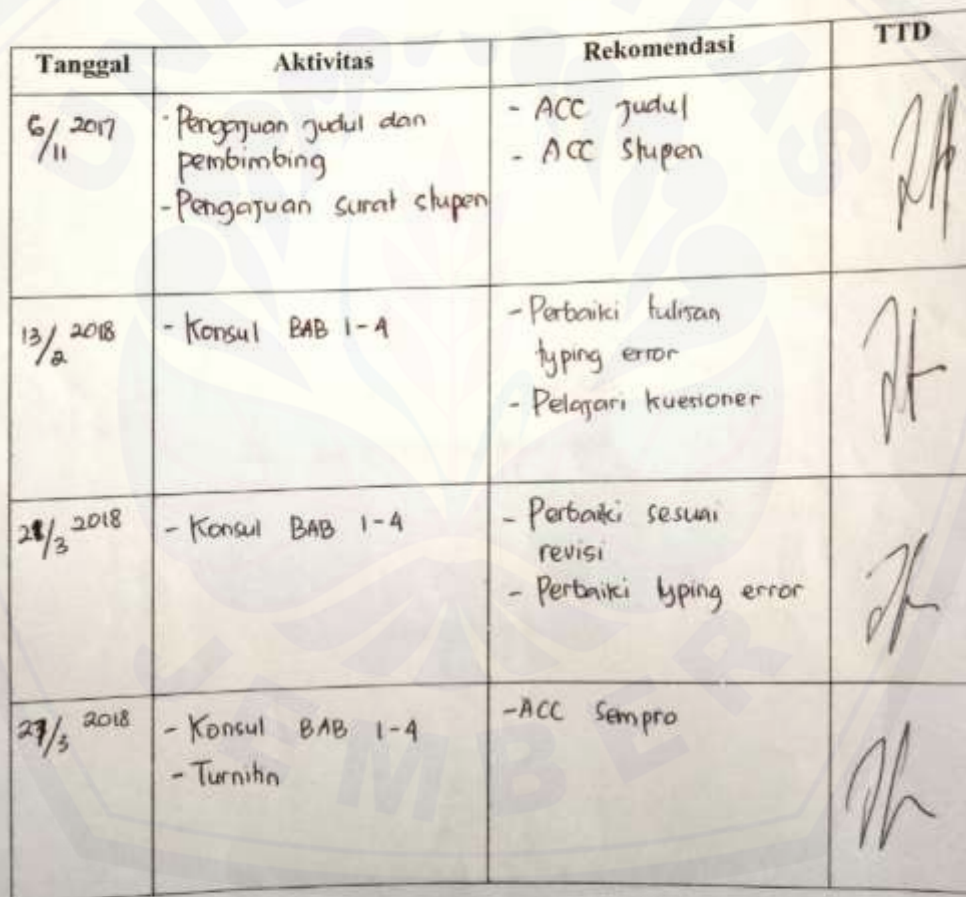 Tanggal Aktivitas Rekomendasi TTD
6/11 2017
- Pengajuan judul dan
pembimbing
- Pengajuan surat stupen
- ACC judul
- ACC stupen
13/2 2018
- Konsul BAB 1-4
- Perbaiki tulisan
typing error
- Pelajari kuesioner
/3 2018
- Konsul BAB 1-4
- Perbaiki sesuai
revisi
- Perbaiki typing error
27/3 2018
- Konsul BAB 1-4
- Turnitin
- ACC Sempro
JEMBER